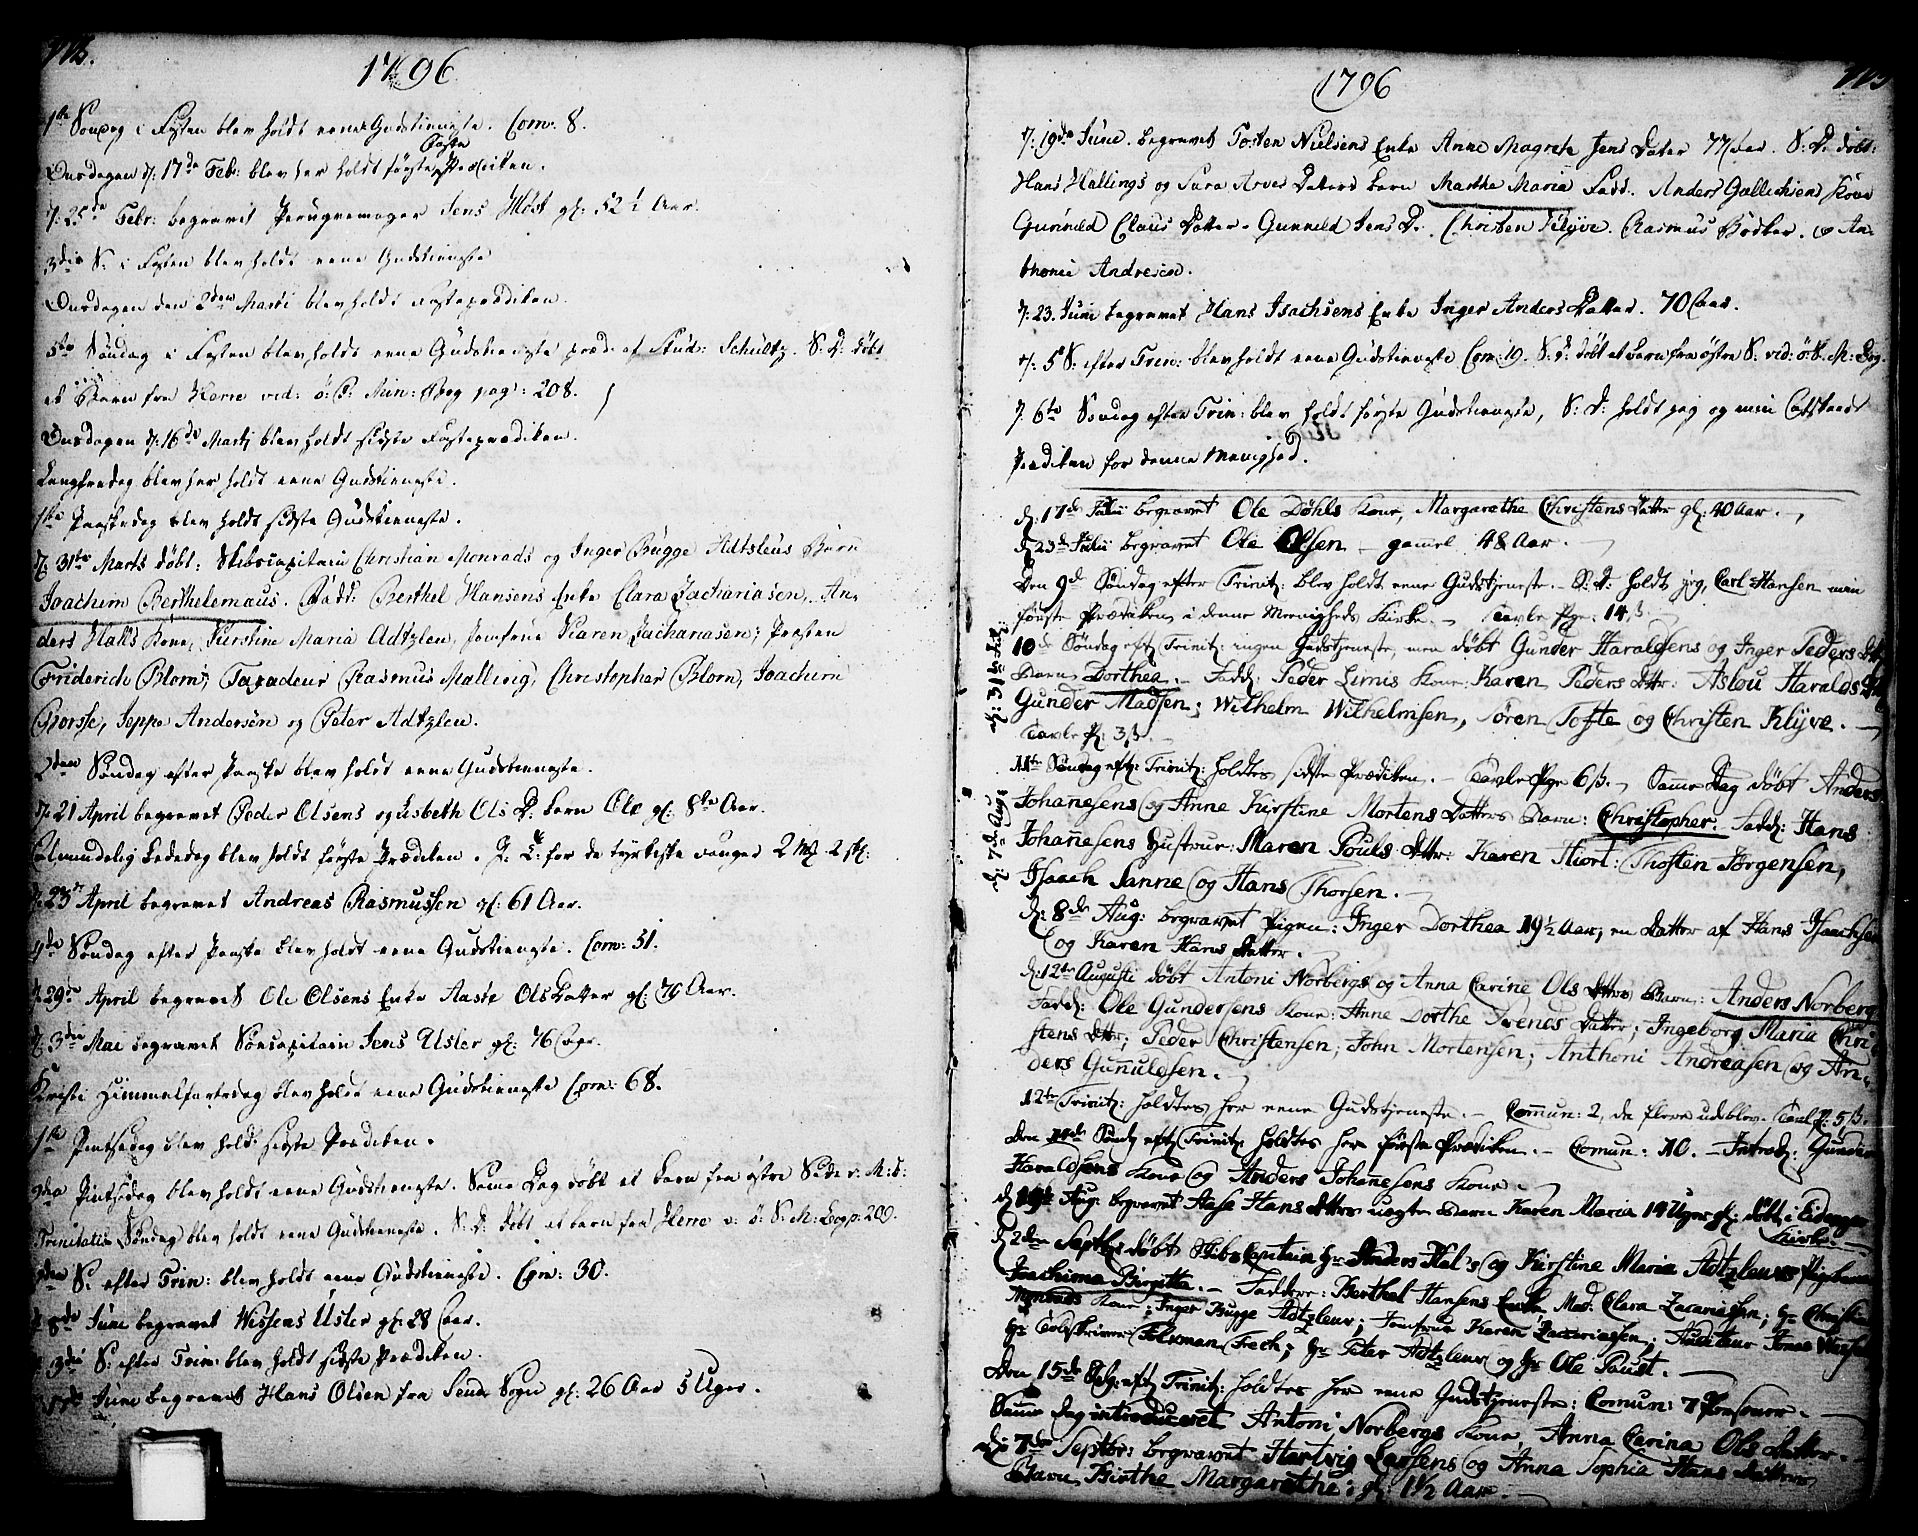 1796
1ste Søndag i Fasten blev holdt eene Gudstieneste. Com: 8.
Faste
Onsdagen d: 17de Febr: blev her holdt første Prædiken.
d: 25de Febr: begravet Perugvemager Jens Høst gl: 52½ Aar.
3die S: i Fasten blev holdt eene Gudstieneste
Onsdagen den 2den Marti blev holdt Fasteprædiken.
5te Søndag i Fasten blev holdt eene Gudstieneste præd: af Stud: Schultz. S: D: døbt
et Barn fra Herre vid: ø: Min: Bog pag: 208.
Onsdagen d: 16de Marti blev holdt sidste Fasteprædiken.
Langfredag blev her holdt eene Gudstieneste.
1ste Paaskedag blev holdt sidste Gudstieneste.
d: 31te Marts døbt: Skibscapitain Christian Monrads og Inger Bugge Adtzleus Barn
Joachim Berthelemæus. Fadd: Berthel Hansens Enke Clara Zachariasen, An-
ders Halls Kone, Kirstine Maria Adtzlen, Jomfrue Karen Zachariasen; Præsten
Friderich Blom; Rasmus Malling, Christopher Blom, Joachim
Borsse, Jeppe Andersen og Peter Adtzlen.
2den Søndag efter Paaske blev holdt eene Gudstieneste.
d: 21 April begravet Peder Olsens og Lisbeth Ols D: barn Ole gl: 8te Aar.
Almindelig Bededag blev holdt første Prædiken. for de tyrkiske Fanger 2 mk 2 sk:
d: 23de April begravet Andreas Rasmussen gl: 61 Aar.
4de Søndag efter Paaske blev holdt eene Gudstieneste. Com: 51.
d: 29de April begravet Ole Olsens Enke Aaste Ols Datter gl: 79 Aar.
d: 3die Mai begravet Søecapitain Jens Usler gl: 76 Aar.
Kristi Himmelfartsdag blev holdt eene Gudstieneste Com: 68.
1ste Pintsedag blev holdt sidste Prædiken.
2den Pintsedag blev holdt eene Gudstieneste. Samme Dag døbt et barn fra østre Side v: M: B:
Trinitatis Søndag blev holdt eene Gudstieneste. S: D: døbt et barn fra Herre v: ø: S: M: Bog p: 209.
2den S: efter Trin: blev holdt eene Gudstieneste. Com: 30.
Junii begravet Uster gl: 28 Aar.
3die S: efter Trin: blev holdt sidste Prædiken.
Junii begravet Hans Olsen fra Sende Sogn gl: 26 Aar 5 Uger.
1796
d: 19de Junii. begravet Tosten Nielsens Enke Anne Magrete Jens Datter 77 Aar. S: D: døbt:
Hans Hallings og Sara Arves Datters barn Marthe Maria Fadd: Anders Gallichsens Kone
Gunnild Claus Datter. Gunnild Jens D: Christen Klyve. Rasmus Bødker. og An-
thonie Andresen.
d: 23. Juni begravet Hans Isachsens Enke Inger Anders Datter. 70 Aar.
d: 5te S: efter Trin: blev holdt eene Gudstieneste Com: 19. S: D: døbt et barn fra østre S: vid: ø: S: M: Bog.
d: 6te Søndag efter Trin: blev holdt første Gudstieneste, S: D: holdt jeg min Afskeeds
Prædiken for denne Menighed.
d: 17de Julii begravet Ole Døhls Kone, Margarethe Christens Datter gl: 40 Aar.
d: 23de Julii begravet Ole Olsen - gamel 48 Aar.
Den 9de Søndag efter Trinit: blev holdt eene Gudstjeneste. - S: D: holdt jeg, Carl Hansen min
første Prædiken i denne Menigheds Kirke. - Tavle Pge: 14 ß.
d: 31te Julii
10de Søndag eft: Trinit: ingen Gudstjeneste, men døbt Gunder Haraldsens og Inger Peders Dtr
Barn Dorthea. - Fadd: Peder Limis Kone: Karen Peders Dttr: Aslou Haralds Dtr
Gunder Madsen; Wilhelm Wilhelmsen, Søren Tofte og Christen Klyve. -
Tavle P: 3 ß. -
d: 7de Aug:
11te Søndag eft: Trinit: holdtes sidste Prædiken. - Tavle Pge 6 ß. - Samme Dag døbt Anders
Johanesens og Anne Kirstine Mortens Datters Barn: Christopher. Fadd: Hans
Johanesens Hustrue: Maren Pouls Dttr: Karen Hiort: Thosten Jørgensen,
Isaach Sanne og Hans Thorsen. -
d: 8de Aug: begravet Pigen: Inger Dorthea 19½ Aar, en Datter af Hans Isaachsen
og Karen Hans Datter. -
d: 12te Augusti døbt Antoni Norbergs og Anna Carine Ols Dttrs Barn: Anders Norberg
Fadd: Ole Gundersens Kone: Anne Dorthe Svends Datter; Ingeborg Maria Chri-
stens Dttr; Peder Christensen; John Mortensen; Anthoni Andreasen og An-
ders Gunuldsen. -
12te Trinit: holdtes her eene Gudstjeneste. - Commun: 2, da flere udeblev. Tavle P: 5 ß.
Den 14de Sønd: eft: Trinit: holdtes her første Prædiken. - Comun: 10. - Introd: Gunder
Haraldsens Kone og Anders Johanesens Kone. -
d: 19de Aug: begravet Aase Hans Dttrs uægte Barn Karen Maria 14 Uger gl: døbt i Eidanger
Kirke. -
d: 2den Septbr døbt Skibs Capitain Hr Anders Hal's og Kirstine Maria Adtzleurs Pigebarn
Joachima Birgitta. - Faddere: Berthel Hansens Enke Mad: Clara Zacariassen; Hr Christian
Monrads Kone; Inger Bugge Adtzleur; Jomfrue Karen Zacariassen; Auditeur Jonas Wessel
Hr Toldskriver Folkman Frech; Hr Peter Adtzleur og Hr Ole Paust. -
Den 15de Sdg: eft: Trinit: holdtes her eene Gudstjeneste: Comun: 7 Personer. -
Samme Dag introduceret Antoni Norbergs Kone Anna Carina Ols Datter. -
d: 7de Septbr: begravet Hartvig Larsens og Anna Sophia Hans Datters
Barn Birthe Margarethe: gl: 1½ Aar. -